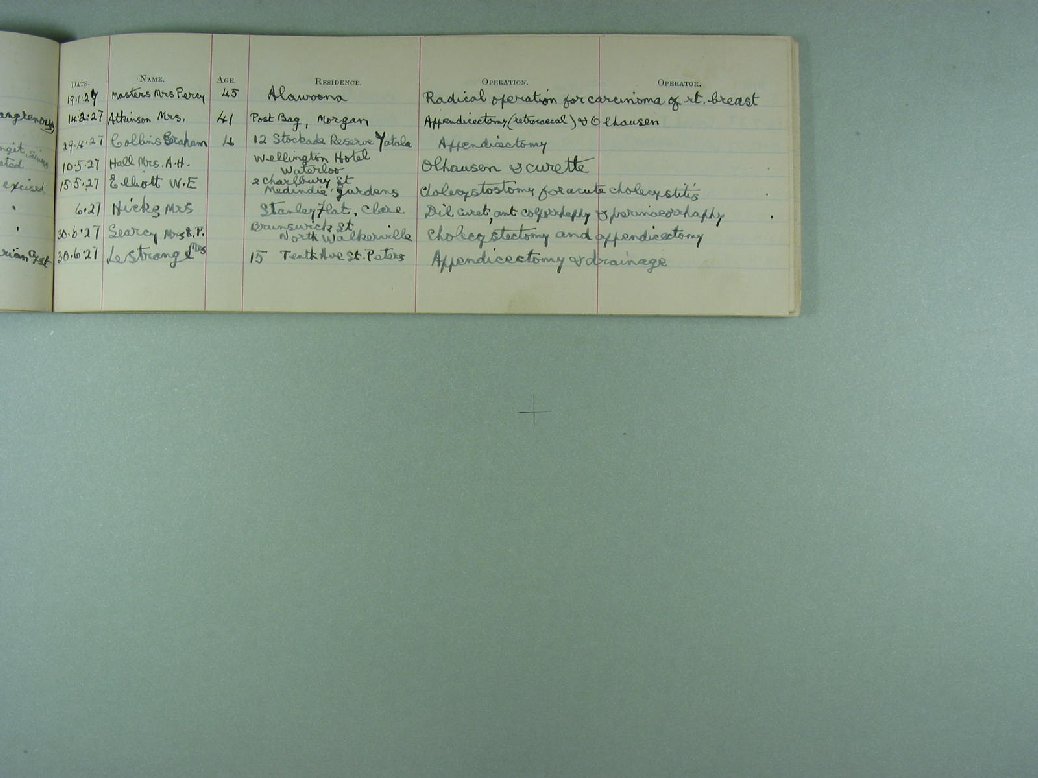 DATE. NAME. AGE. RESIDENCE. OPERATION. OPERATOR.
19.1.27 Masters Mrs Percy 45 Alawoona Radical operation for carcinoma of rt. breast
14.2.27 Atkinson Mrs. 41 Post Bag, Morgan Appendicectomy (retrocaecal) & Olhausen
29.4.27 Collins Graham 4 12 Stockade Reserve Yatala Appendisectomy
10.5.27 Hall Mrs. A.H. Wellington Hotel Waterloo Olhausen & curette
15.5.27 Elliott W.E 2 Charlbury St Medindie Gardens Cholecystostomy for acute cholecystitis
6.27 Hicks Mrs Stanley Flat, Clare Dil curet, ant colporrhaphy & perineorrhaphy
30.6.27 Searcy Mrs R.P. Brunswick St North Walkerville Cholecystectomy and appendicectomy
30.6.27 Le Strange Mrs 15 Tenth Ave St. Peters Appendicectomy & drainage
excised